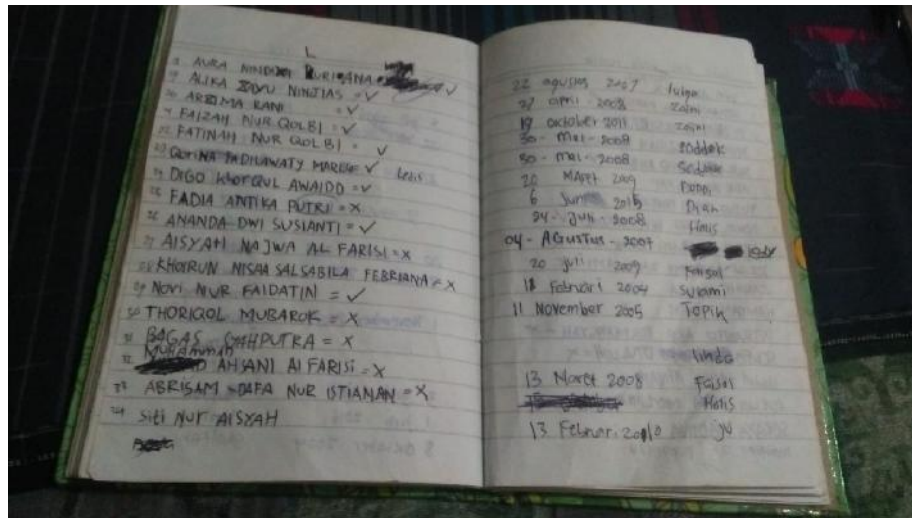 AURA NINDI
ALIKA AYU NINTIAS = ✓
RANI = ✓
FAIZAH NUR QOLBI = ✓
FATINAH NUR QOLBI = ✓
✓
DIGO KHOIRUL AWAIDD = ✓
FADIA ANTIKA PUTRI = X
26 ANANDA DWI SUSIANTI = ✓
27 AISYAH NAJWA AL FARISI = X
28 KHOIRUN NISAA SALSABILA FEBRIANA = X
29 NOVI NUR FAIDATIN = ✓
30 THORIQOL MUBAROK = X
31 BAGAS CAHPUTRA = X
32 MUHAMMAD AHSANI Al FARISI = X
33 ABRISAM DAFA NUR ISTIANAN = X
34 Siti NUR AISYAH
22 agustus 2007
27 april 2008 Zaini
19 oktober 2011 Zaini
30 - Mei - 2008
30 - Mei - 2008
20 MAret 2009
6 2015 Dian
24 - Juli - 2008
04 - AGUSTUS - 2007
20 juli 2009 Faisal
18 Februari 2004 Surami
11 November 2005 Topik
linda
13 Maret 2008 Faisal
Holis
13 Februari 2010 ju